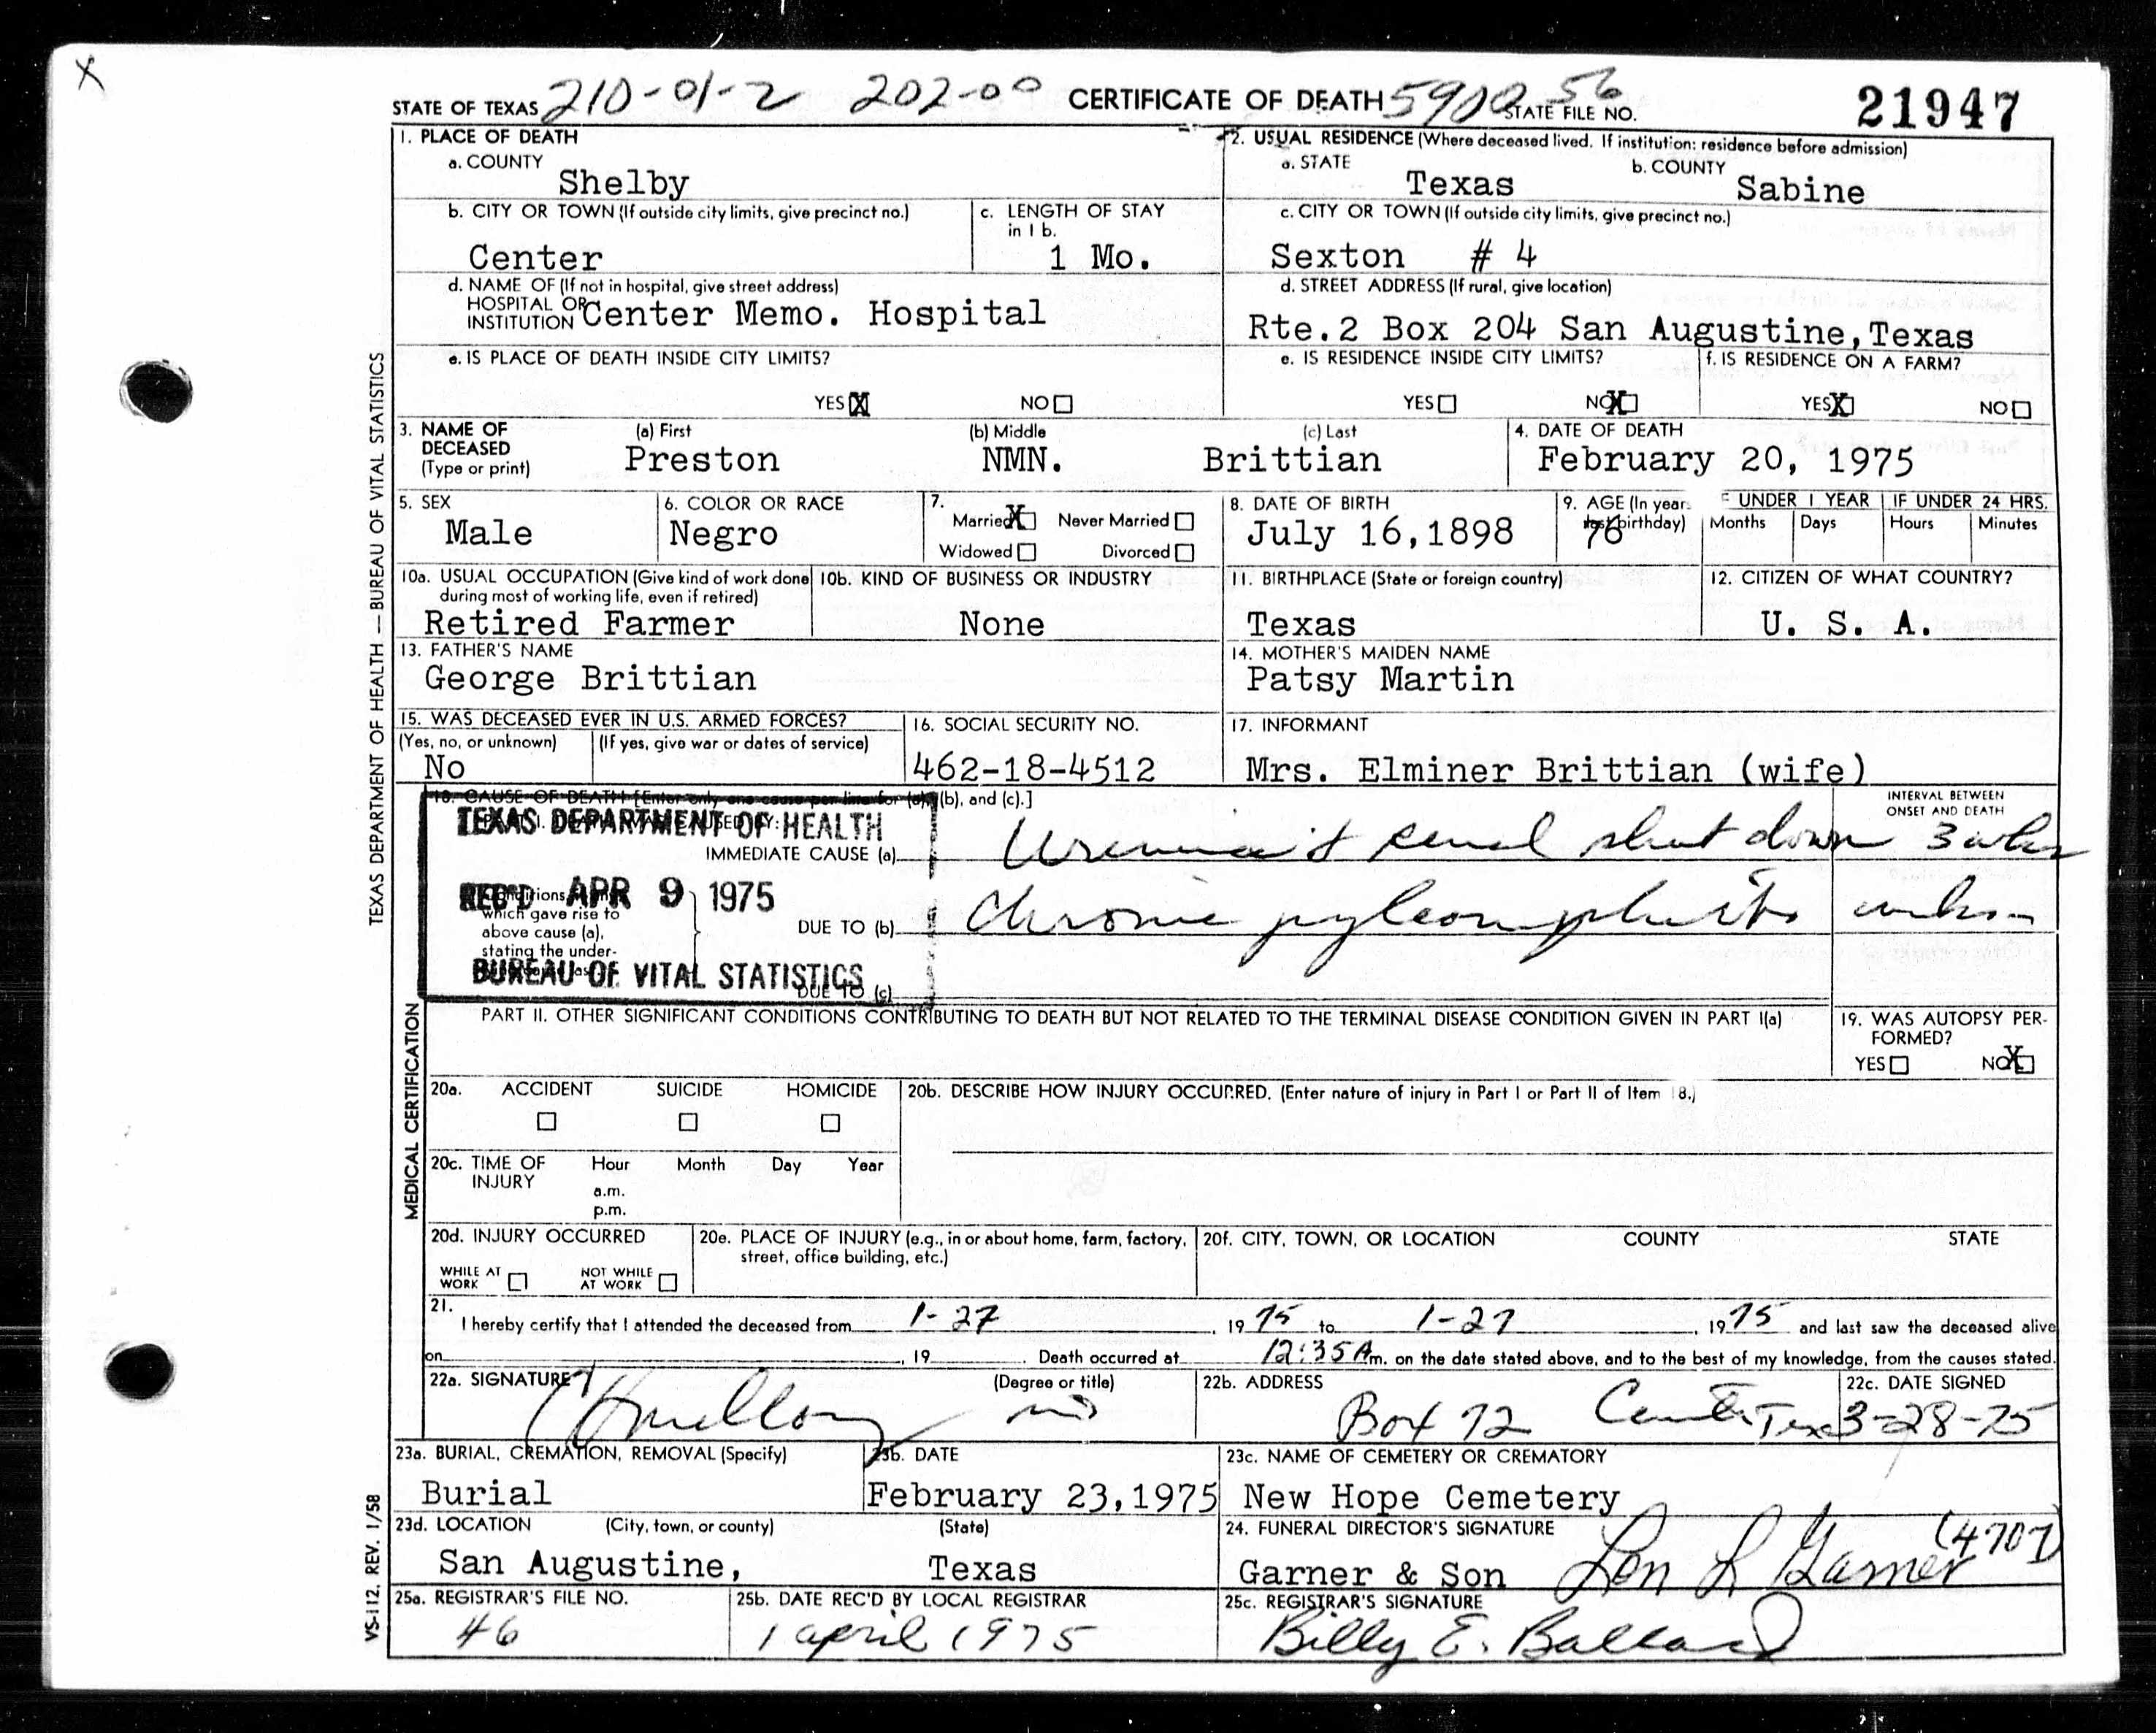 X
STATE OF TEXAS 210-01-2 202-00 CERTIFICATE OF DEATH 5900 56 STATE FILE NO. 21947
TEXAS DEPARTMENT OF HEALTH — BUREAU OF VITAL STATISTICS
1. PLACE OF DEATH
a. COUNTY
Shelby
2. USUAL RESIDENCE (Where deceased lived. If institution: residence before admission)
a. STATE
Texas
b. COUNTY
Sabine
b. CITY OR TOWN (If outside city limits, give precinct no.)
Center
c. LENGTH OF STAY
in 1 b.
1 Mo.
c. CITY OR TOWN (If outside city limits, give precinct no.)
Sexton # 4
d. NAME OF (If not in hospital, give street address)
HOSPITAL OR
INSTITUTION Center Memo. Hospital
d. STREET ADDRESS (If rural, give location)
Rte.2 Box 204 San Augustine,Texas
e. IS PLACE OF DEATH INSIDE CITY LIMITS?
YES X NO
e. IS RESIDENCE INSIDE CITY LIMITS?
YES NO X
f. IS RESIDENCE ON A FARM?
YES X NO
3. NAME OF
DECEASED
(Type or print)
(a) First (b) Middle (c) Last
Preston NMN. Brittian
4. DATE OF DEATH
February 20, 1975
5. SEX
Male
6. COLOR OR RACE
Negro
7.
Married X Never Married
Widowed Divorced
8. DATE OF BIRTH
July 16,1898
9. AGE (In year
birthday)
76
UNDER 1 YEAR IF UNDER 24 HRS.
Months Days Hours Minutes
10a. USUAL OCCUPATION (Give kind of work done
during most of working life, even if retired)
Retired Farmer
10b. KIND OF BUSINESS OR INDUSTRY
None
11. BIRTHPLACE (State or foreign country)
Texas
12. CITIZEN OF WHAT COUNTRY?
U. S. A.
13. FATHER'S NAME
George Brittian
14. MOTHER'S MAIDEN NAME
Patsy Martin
15. WAS DECEASED EVER IN U.S. ARMED FORCES?
(Yes, no, or unknown) (If yes, give war or dates of service)
No
16. SOCIAL SECURITY NO.
462-18-4512
17. INFORMANT
Mrs. Elminer Brittian (wife)
MEDICAL CERTIFICATION
18. CAUSE OF DEATH [Enter only one cause per line for (a), (b), and (c).]
TEXAS DEPARTMENT OF HEALTH
REC'D APR 9 1975
BUREAU OF VITAL STATISTICS
INTERVAL BETWEEN
ONSET AND DEATH
IMMEDIATE CAUSE (a) Uremia & renal shut down 3 wks
which gave rise to
above cause (a),
stating the under-
DUE TO (b) Chronic pyleonephritis unkn
DUE TO (c)
PART II. OTHER SIGNIFICANT CONDITIONS CONTRIBUTING TO DEATH BUT NOT RELATED TO THE TERMINAL DISEASE CONDITION GIVEN IN PART I(a)
19. WAS AUTOPSY PER-
FORMED?
YES NO X
20a. ACCIDENT SUICIDE HOMICIDE
20b. DESCRIBE HOW INJURY OCCURRED. (Enter nature of injury in Part I or Part II of Item 18.)
20c. TIME OF
INJURY
Hour Month Day Year
a.m.
p.m.
20d. INJURY OCCURRED
WHILE AT
WORK
NOT WHILE
AT WORK
20e. PLACE OF INJURY (e.g., in or about home, farm, factory,
street, office building, etc.)
20f. CITY, TOWN, OR LOCATION COUNTY STATE
21.
I hereby certify that I attended the deceased from 1-27, 1975 to 1-27, 1975 and last saw the deceased alive
on , 19 . Death occurred at 12:35 A m. on the date stated above, and to the best of my knowledge, from the causes stated.
22a. SIGNATURE (Degree or title)
MD
22b. ADDRESS
Box 72 Center Tex
22c. DATE SIGNED
3-28-75
23a. BURIAL, CREMATION, REMOVAL (Specify)
Burial
23b. DATE
February 23,1975
23c. NAME OF CEMETERY OR CREMATORY
New Hope Cemetery
23d. LOCATION (City, town, or county) (State)
San Augustine, Texas
24. FUNERAL DIRECTOR'S SIGNATURE
Garner & Son Lon L Garner (4707)
25a. REGISTRAR'S FILE NO.
46
25b. DATE REC'D BY LOCAL REGISTRAR
1 april 1975
25c. REGISTRAR'S SIGNATURE
Billy E. Ballard
VS-112. REV. 1/58